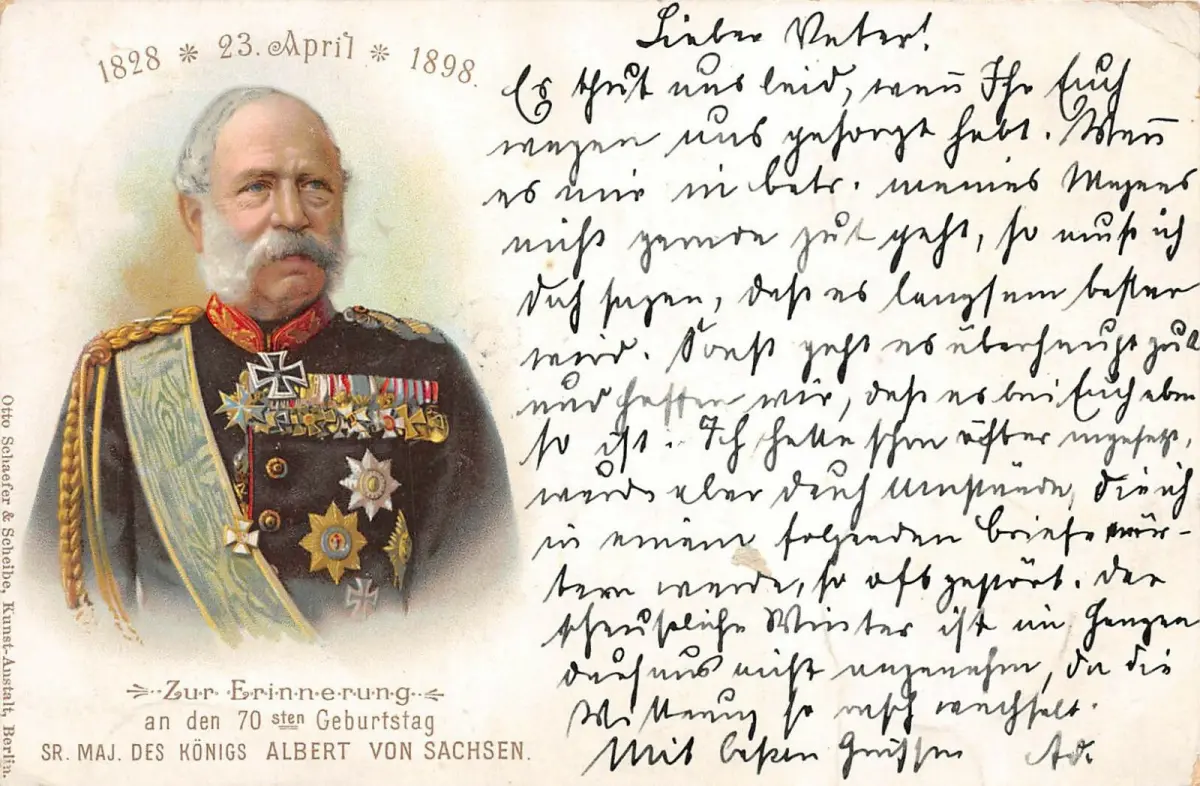 1828 * 23. April * 1898.
Zur Erinnerung
an den 70 sten Geburtstag
SR. MAJ. DES KÖNIGS ALBERT VON SACHSEN.
Otto Schaefer & Scheibe, Kunst-Anstalt, Berlin.
Lieber Vater!
Es thut uns leid, wenn Ihr Euch
wegen uns gesorgt habt. Wenn
es mir in betr. meines Magens
nicht gerade gut geht, so muß ich
doch sagen, daß es langsam besser
wird. Sonst geht es überhaupt gut
und hoffen wir, daß es bei Euch eben
so ist. Ich hatte schon öfter angesetzt,
wurde aber durch Umstände, die ich
in einem folgenden Briefe
werde, so oft gestört. Der
scheußliche Winter ist im Ganzen
durchaus nicht angenehm, da die
Witterung so rasch wechselt.
Mit besten Grüssen Ad.